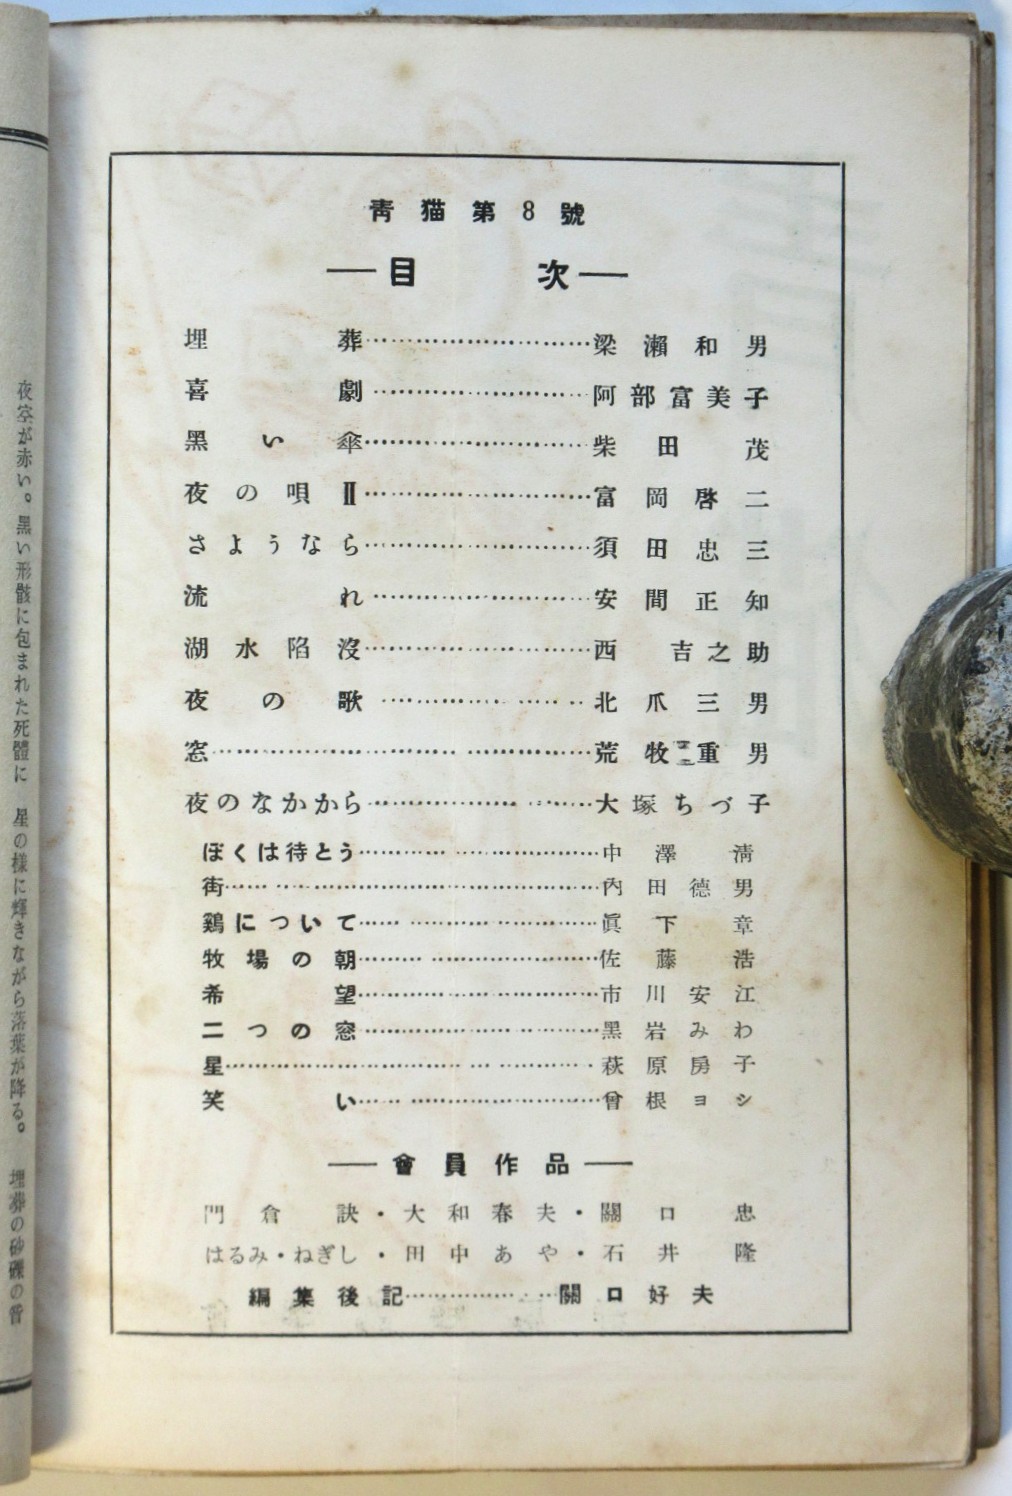 青猫第8號
目次
埋葬…………梁瀨和男
喜劇…………阿部富美子
黑い傘…………柴田茂
夜の唄Ⅱ…………富岡啓二
さようなら…………須田忠三
流れ…………安間正知
湖水陷沒…………西吉之助
夜の歌…………北爪三男
窓…………荒牧重男
夜のなかから…………大塚ちづ子
ぼくは待とう…………中澤淸
街…………內田德男
鷄について…………眞下章
牧場の朝…………佐藤浩
希望…………市川安江
二つの窓…………黑岩みわ
星…………萩原房子
笑い…………曾根ヨシ
會員作品
門倉訣・大和春夫・關口忠
はるみ・ねぎし・田中あや・石井隆
編集後記…………關口好夫
夜空が赤い。黑い形骸に包まれた死體に　星の樣に輝きながら落葉が降る。　埋葬の砂礫の音